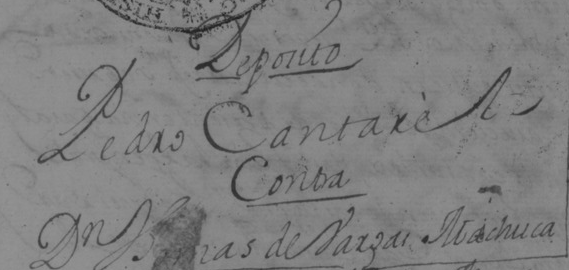 Deposito
Pedro Cantarè
Contra
Dn de Vargas Machuca